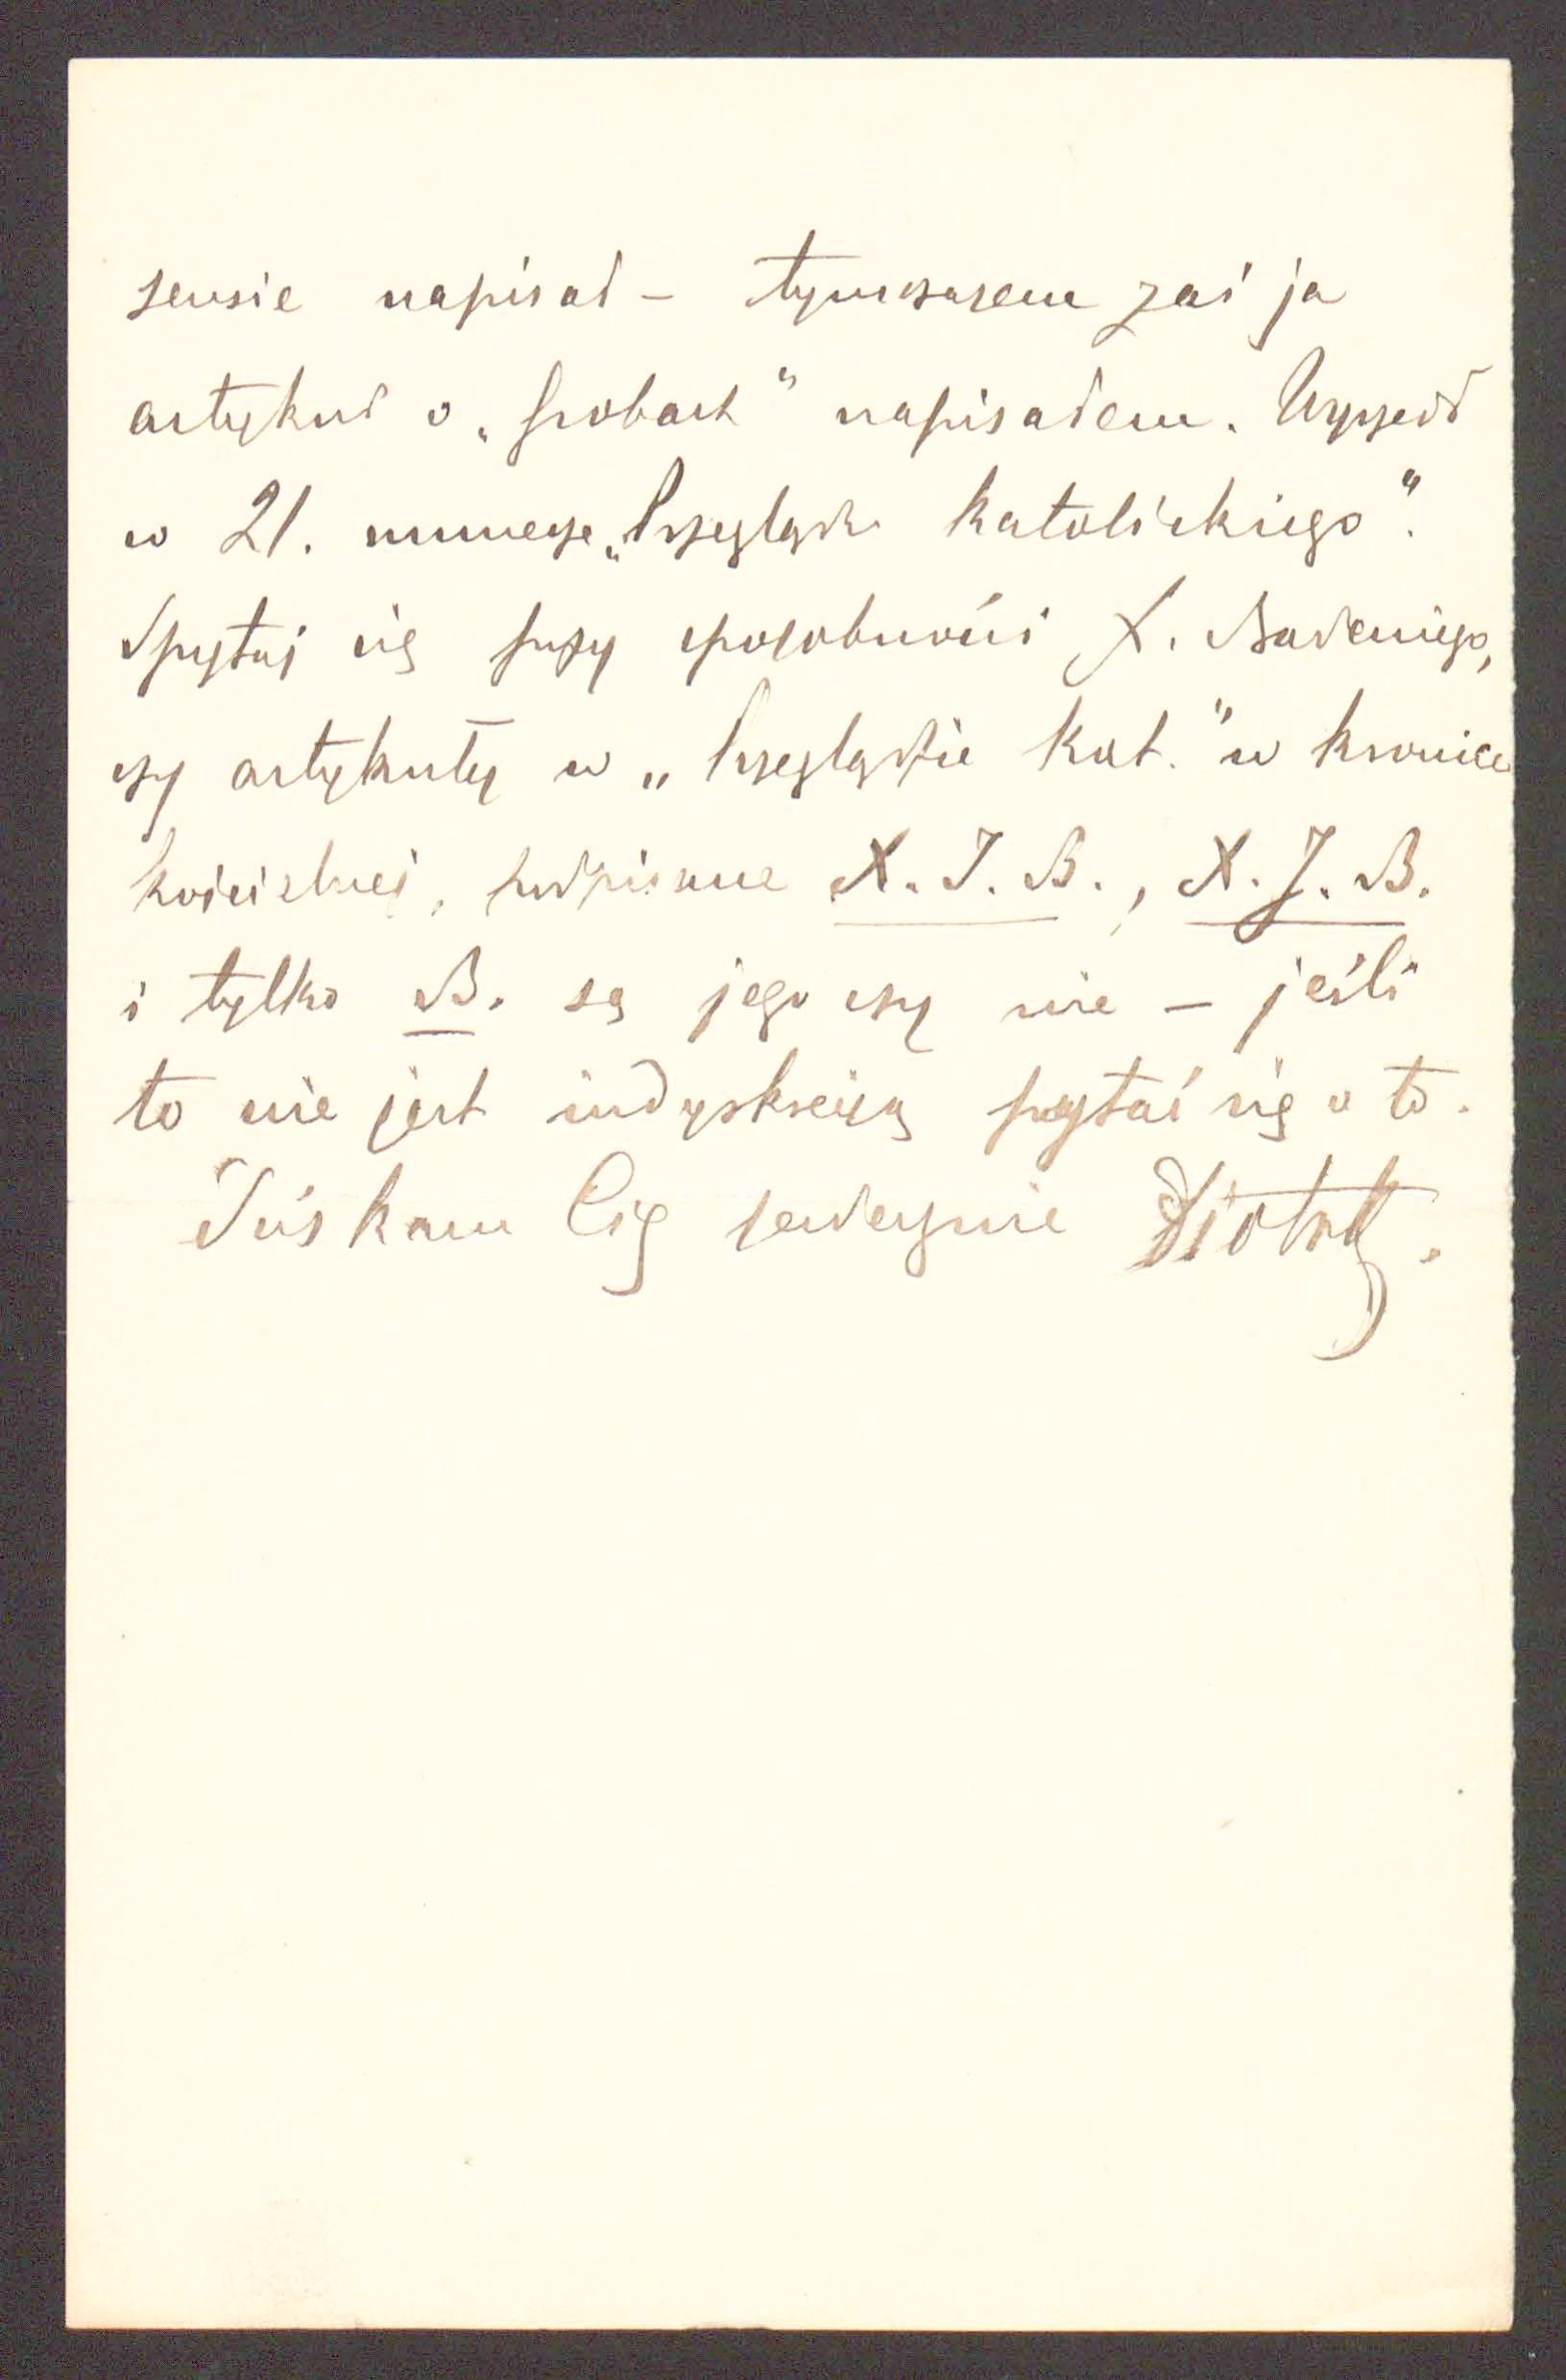 sensie napisał – tymczasem zaś ja
artykuł o „Grobach" napisałem. Wyszedł
w 21. numerze „Przeglądu Katolickiego".
Spytaj się przy sposobności X. Badeniego,
czy artykuły w „Przeglądzie Kat." w kronice
kościelnej, podpisane X. I. B., X. J. B.
i tylko B. są jego czy nie – jeśli
to nie jest indyskrecyą pytać się o to.
Ściskam Cię serdecznie Piotr.